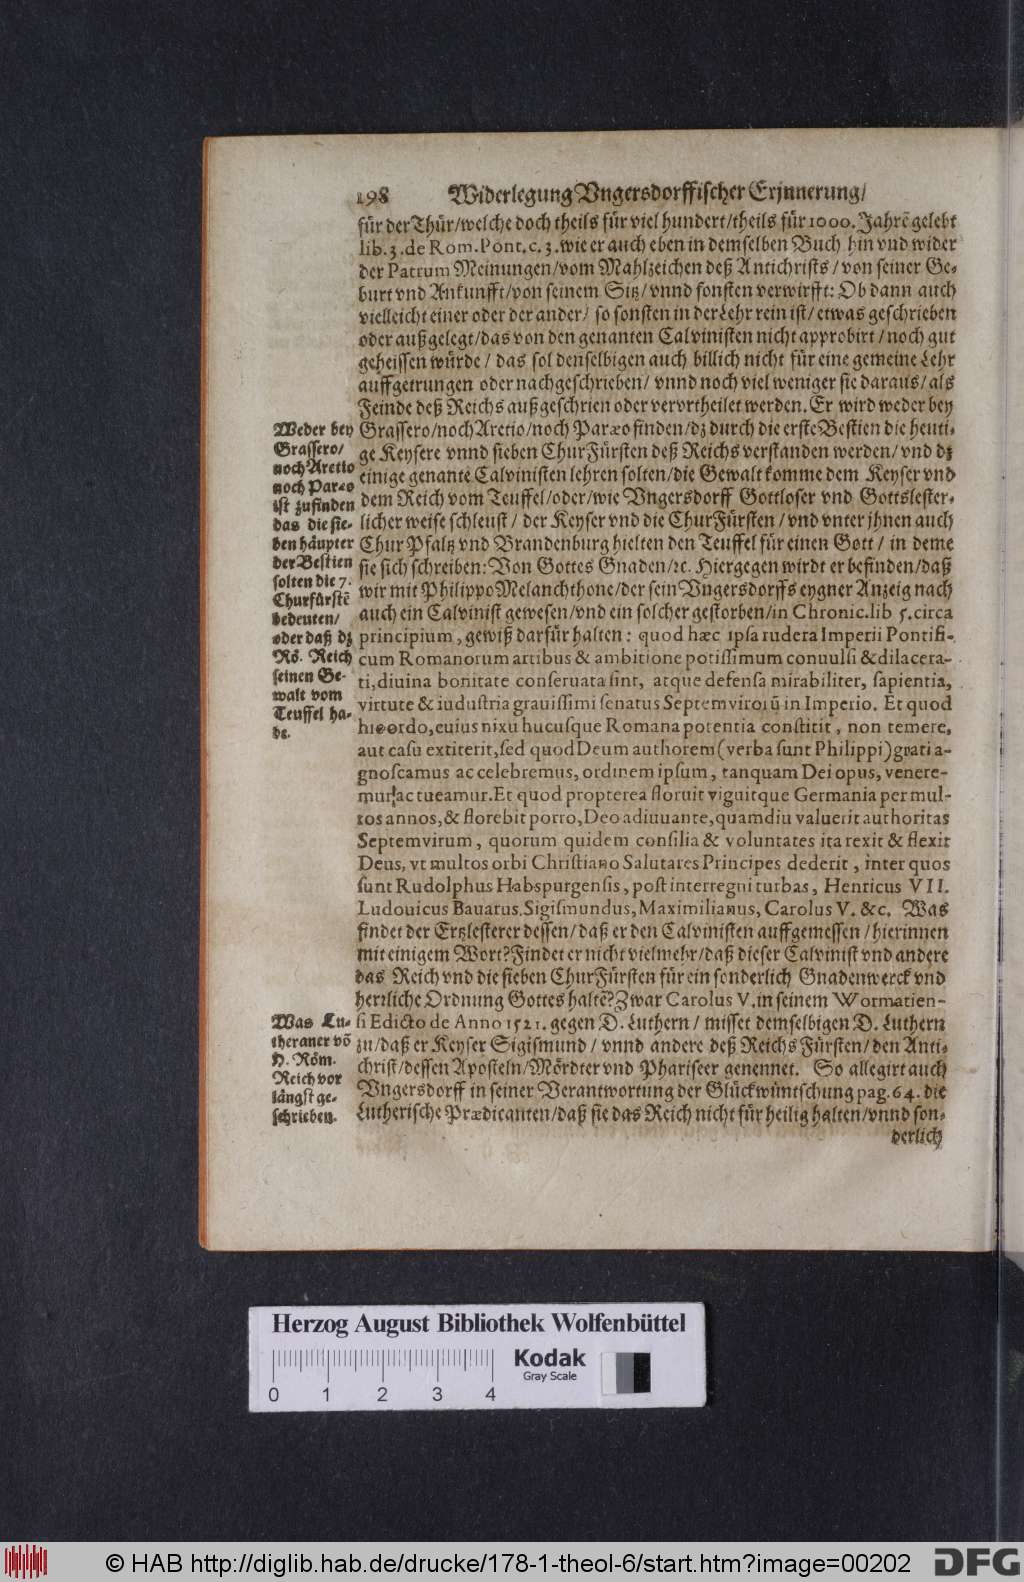 198 Widerlegung Vngersdorffischer Erjnnerung/
für der Thür/welche doch theils für viel hundert/theils für 1000. Jahrē gelebt
lib. 3. de Rom. Pont. c. 3. wie er auch eben in demselben Buch hin vnd wider
der Patrum Meinungen/vom Mahlzeichen deß Antichrists/von seiner Ge-
burt vnd Ankunfft/von seinem Sitz/vnnd sonsten verwirfft: Ob dann auch
vielleicht einer oder der ander/so sonsten in der Lehr rein ist/etwas geschrieben
oder außgelegt/das von den genanten Calvinisten nicht approbirt/noch gut
geheissen würde/das sol denselbigen auch billich nicht für eine gemeine Lehr
auffgetrungen oder nachgeschrieben/vnnd noch viel weniger sie daraus/als
Feinde deß Reichs außgeschrien oder vervrtheilet werden. Er wird weder bey
Grassero/noch Aretio/noch Paræo finden/dz durch die erste Bestien die heuti-
ge Keysere vnnd sieben ChurFürsten deß Reichs verstanden werden/vnd dz
einige genante Calvinisten lehren solten/die Gewalt komme dem Keyser vnd
dem Reich vom Teuffel/oder/wie Vngersdorff Gottloser vnd Gottslester-
licher weise schleust/der Keyser vnd die ChurFürsten/vnd vnter jhnen auch
Chur Pfaltz vnd Brandenburg hielten den Teuffel für einen Gott/in deme
sie sich schreiben: Von Gottes Gnaden/ꝛc. Hiergegen wirdt er befinden/daß
wir mit Philippo Melanchthone/der sein Vngersdorffs eygner Anzeig nach
auch ein Calvinist gewesen/vnd ein solcher gestorben/in Chronic. lib 5. circa
principium, gewiß darfür halten: quod hæc ipsa rudera Imperii Pontifi-
cum Romanorum artibus & ambitione potissimum conuulsi & dilacera-
ti, diuina bonitate conseruata sint, atque defensa mirabiliter, sapientia,
virtute & iudustria grauissimi senatus Septemuiroiū in Imperio. Et quod
hic ordo, cuius nixu hucusque Romana potentia constitit, non temere,
aut casu extiterit, sed quod Deum authorem (verba sunt Philippi) grati a-
gnoscamus ac celebremus, ordinem ipsum, tanquam Dei opus, venere-
mur ac tueamur. Et quod propterea floruit viguitque Germania per mul-
tos annos, & florebit porro, Deo adiuuante, quamdiu valuerit authoritas
Septemvirum, quorum quidem consilia & voluntates ita rexit & flexit
Deus, vt multos orbi Christiano Salutares Principes dederit, inter quos
sunt Rudolphus Habspurgensis, post interregni turbas, Henricus VII.
Ludouicus Bauarus. Sigismundus, Maximilianus, Carolus V. &c. Was
findet der Ertzlesterer dessen/daß er den Calvinisten auffgemessen/hierinnen
mit einigem Wort? Findet er nicht vielmehr/daß dieser Calvinist vnd andere
das Reich vnd die sieben ChurFürsten für ein sonderlich Gnadenwerck vnd
herrliche Ordnung Gottes haltē? Zwar Carolus V. in seinem Wormatien-
si Edicto de Anno 1521. gegen D. Luthern/misset demselbigen D. Luthern
zu/daß er Keyser Sigismund/vnnd andere deß Reichs Fürsten/den Anti-
christ/dessen Aposteln/Mördter vnd Phariseer genennet. So allegirt auch
Vngersdorff in seiner Verantwortung der Glückwüntschung pag. 64. die
Lutherische Prædicanten/daß sie das Reich nicht für heilig halten/vnnd son-
derlich
Weder bey
Grassero/
noch Aretio
noch Paræo
ist zufinden
das die sie-
ben häupter
der Bestien
solten die 7.
Churfürstē
bedeuten/
oder daß dz
Rö. Reich
seinen Ge-
walt vom
Teuffel ha-
be.
Was Lu-
theraner võ
H. Röm.
Reich vor
längst ge-
schrieben.
Herzog August Bibliothek Wolfenbüttel
Kodak
Gray Scale
0 1 2 3 4
© HAB http://diglib.hab.de/drucke/178-1-theol-6/start.htm?image=00202
DFG